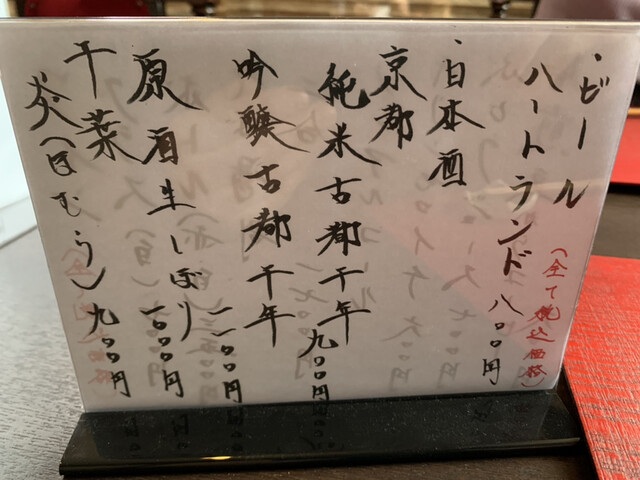 ・ビール
(全て税込価格)
ハートランド 八〇〇円
・日本酒
京都
純米古都千年 九〇〇円
吟醸古都千年 一一〇〇円
原酒生しぼり 一〇〇〇円
千葉
炎(ほむら) 九〇〇円